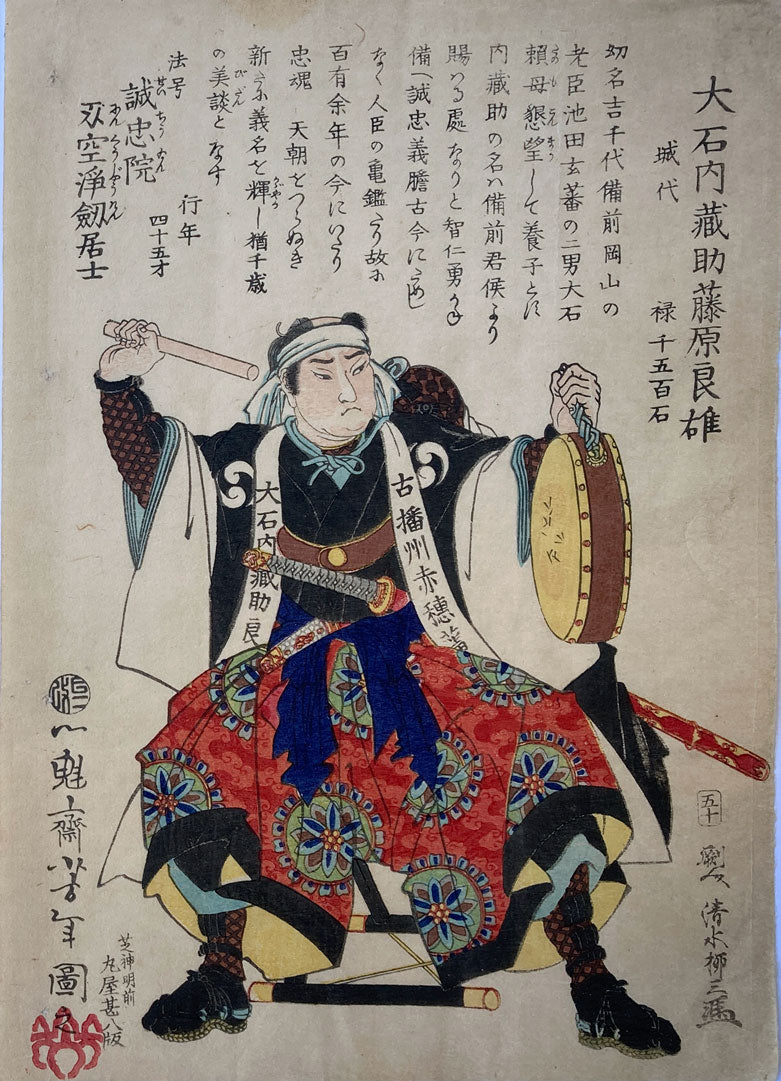 大石内藏助藤原良雄
城代
禄 千五百石
幼名吉千代備前岡山の
老臣池田玄蕃の二男大石
頼母懇望して養子とす
内藏助の名ハ備前君侯より
賜ハる處なりと智仁勇かね
備へ誠忠義膽古今にためし
なく人臣の亀鑑たり故に
百有余年の今にいたり
忠魂 天朝をつらぬき
新に義名を輝し猶千歳
の美談となす
行年
四十五才
法号
誠忠院
刃空浄劔居士
大石内藏助良
古播州赤穂藩
一魁齋芳年圖
芝神明前
丸屋甚八版
五十
清水柳三